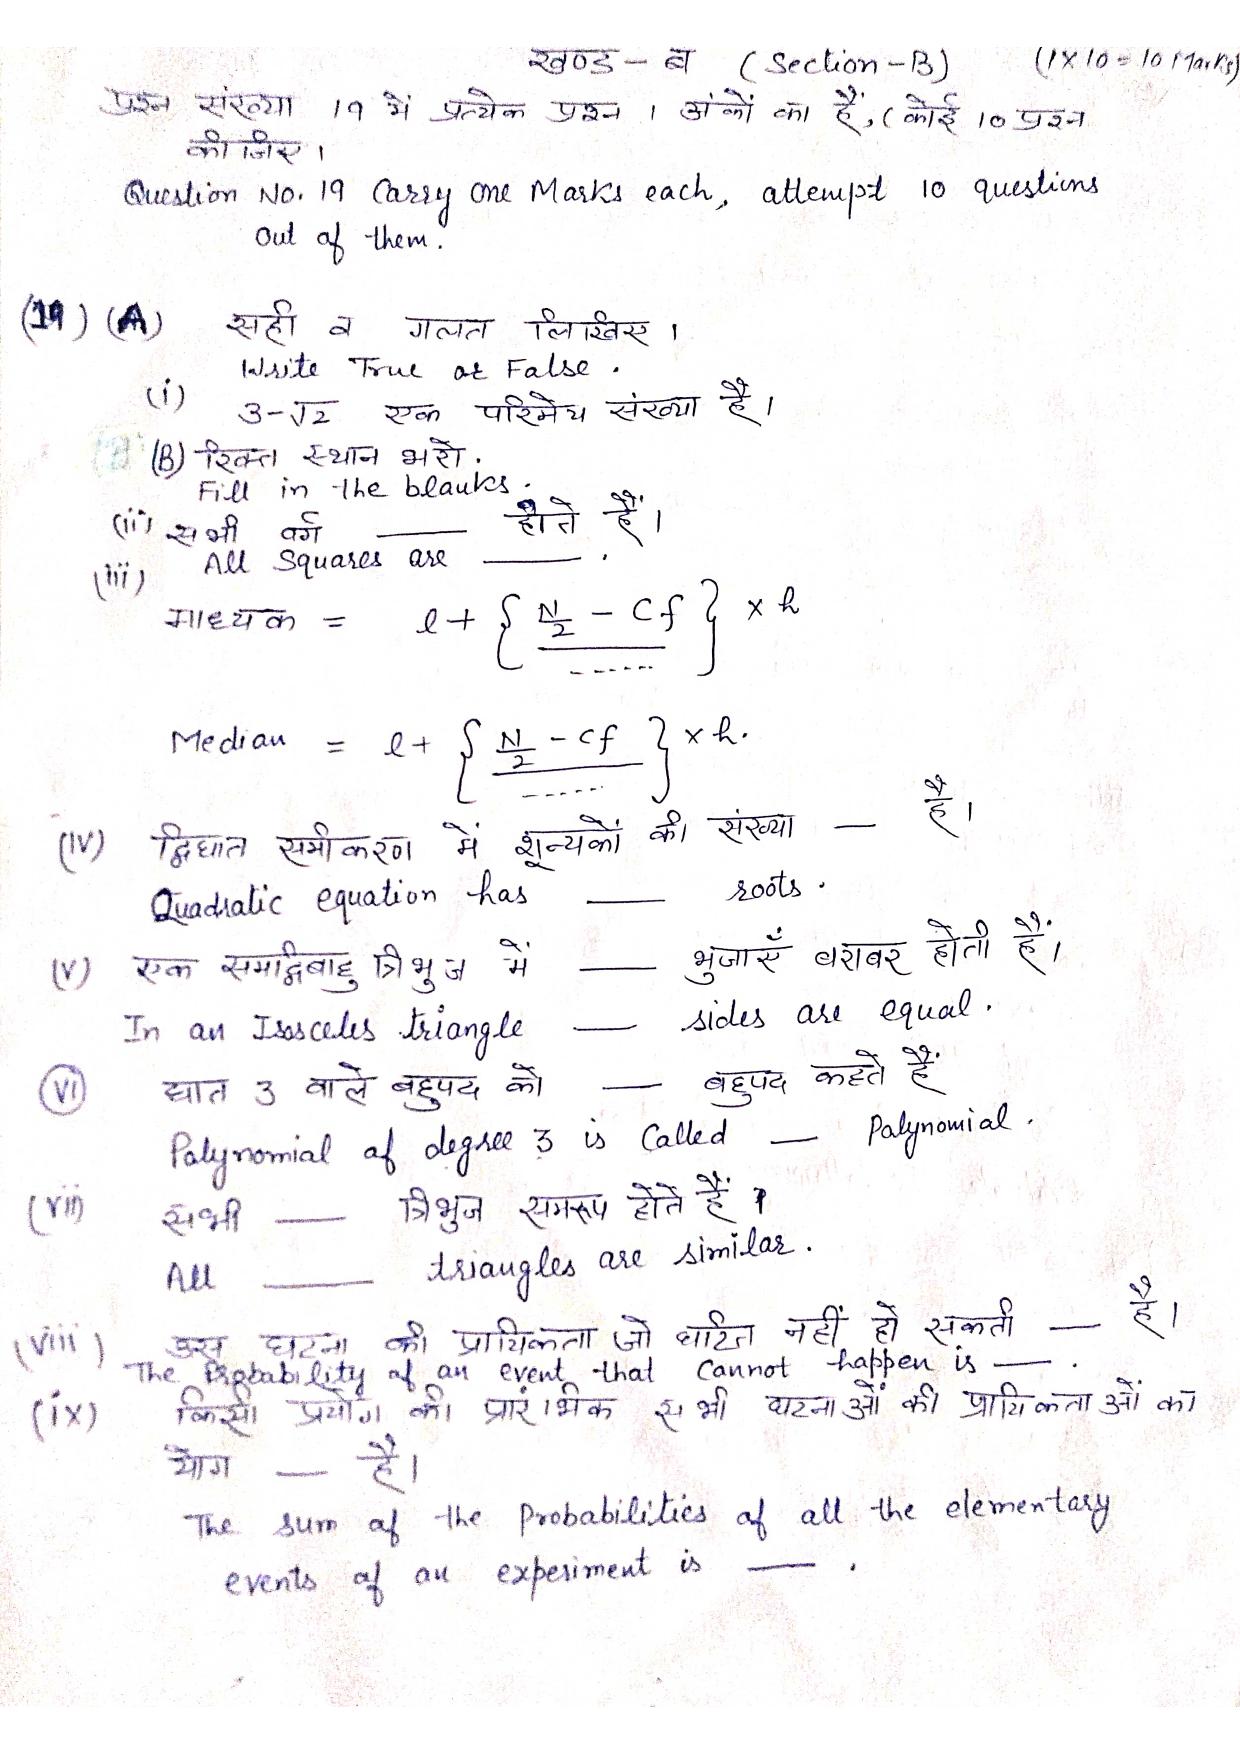 खण्ड - ब (Section-B) (1X10=10 Marks)
प्रश्न संख्या 19 में प्रत्येक प्रश्न 1 अंकों का हैं, (कोई 10 प्रश्न
कीजिए।
Question No. 19 Carry One Marks each, attempt 10 questions
out of them.
(19) (A) सही व गलत लिखिए।
Write True or False.
(i) 3-√2 एक परिमेय संख्या है।
(B) रिक्त स्थान भरो.
Fill in the blanks.
(ii) सभी वर्ग ____ होते हैं।
All Squares are ____ .
(iii)
माध्यक = l + { (N/2 - Cf) / ...... } x h
Median = l + { (N/2 - Cf) / ...... } x h.
(iv) द्विघात समीकरण में शून्यकों की संख्या — है।
Quadratic equation has ____ roots.
(v) एक समद्विबाहु त्रिभुज में ____ भुजाएँ बराबर होती हैं।
In an Isosceles triangle ____ sides are equal.
(vi) घात 3 वाले बहुपद को ____ बहुपद कहते हैं
Polynomial of degree 3 is Called ____ Polynomial.
(vii) सभी ____ त्रिभुज समरूप होते हैं।
All ____ triangles are similar.
(viii) उस घटना की प्रायिकता जो घटित नहीं हो सकती ____ है।
The Probability of an event that Cannot happen is ____ .
(ix) किसी प्रयोग की प्रारंभिक सभी घटनाओं की प्रायिकताओं का
योग ____ है।
The sum of the Probabilities of all the elementary
events of an experiment is ____ .